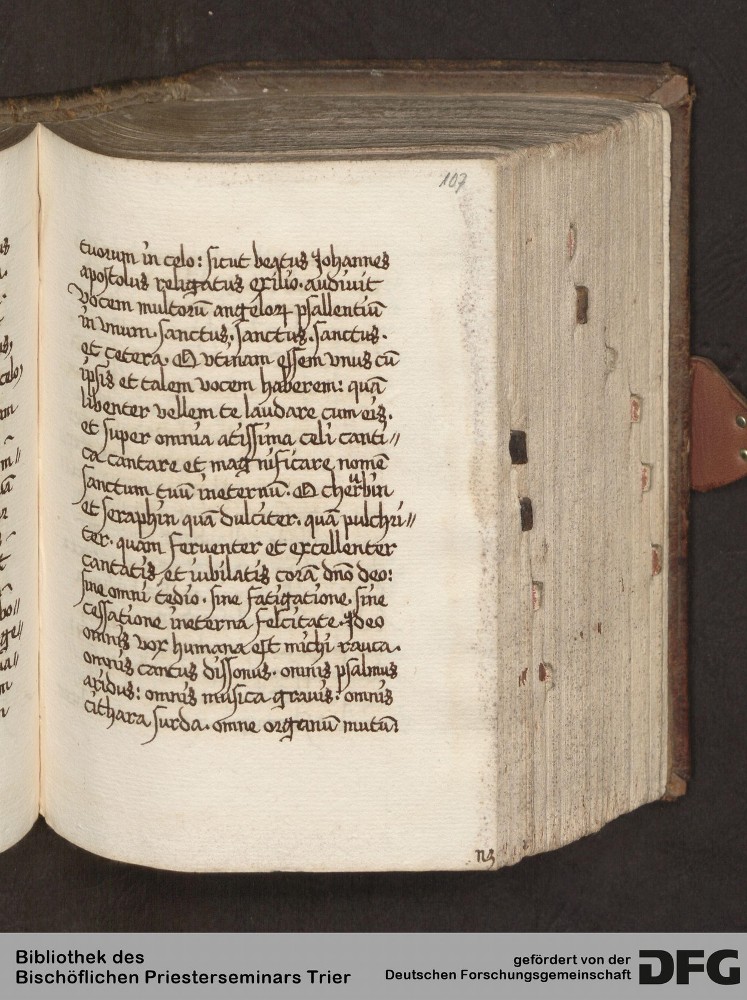 107
tuorum in celo: sicut beatus Johannes
apostolus religatus exilio. audiuit
vocem multorū angeloꝝ psallentiū
in vnum. sanctus. sanctus. sanctus.
et cetera. O vtinam essem vnus cū
ipsis et talem vocem haberem: quā
libenter vellem te laudare cum eis.
et super omnia atissima celi canti//
ca cantare et magnificare nomē
sanctum tuū ineternū. O cherubin
et seraphin quā dulciter. quā pulchri//
ter. quam feruenter et excellenter
cantatis et iubilatis corā dnō deo:
sine omni tedio. sine fatigatione. sine
cessatione ineterna felcitate. Jdeo
omnis vox humana est michi rauca.
omnis cantus dissonus. omnis psalmus
aridus: omnis musica grauis: omnis
cithara surda. omne organū mutū:
n3
Bibliothek des
Bischöflichen Priesterseminars Trier
gefördert von der
Deutschen Forschungsgemeinschaft
DFG